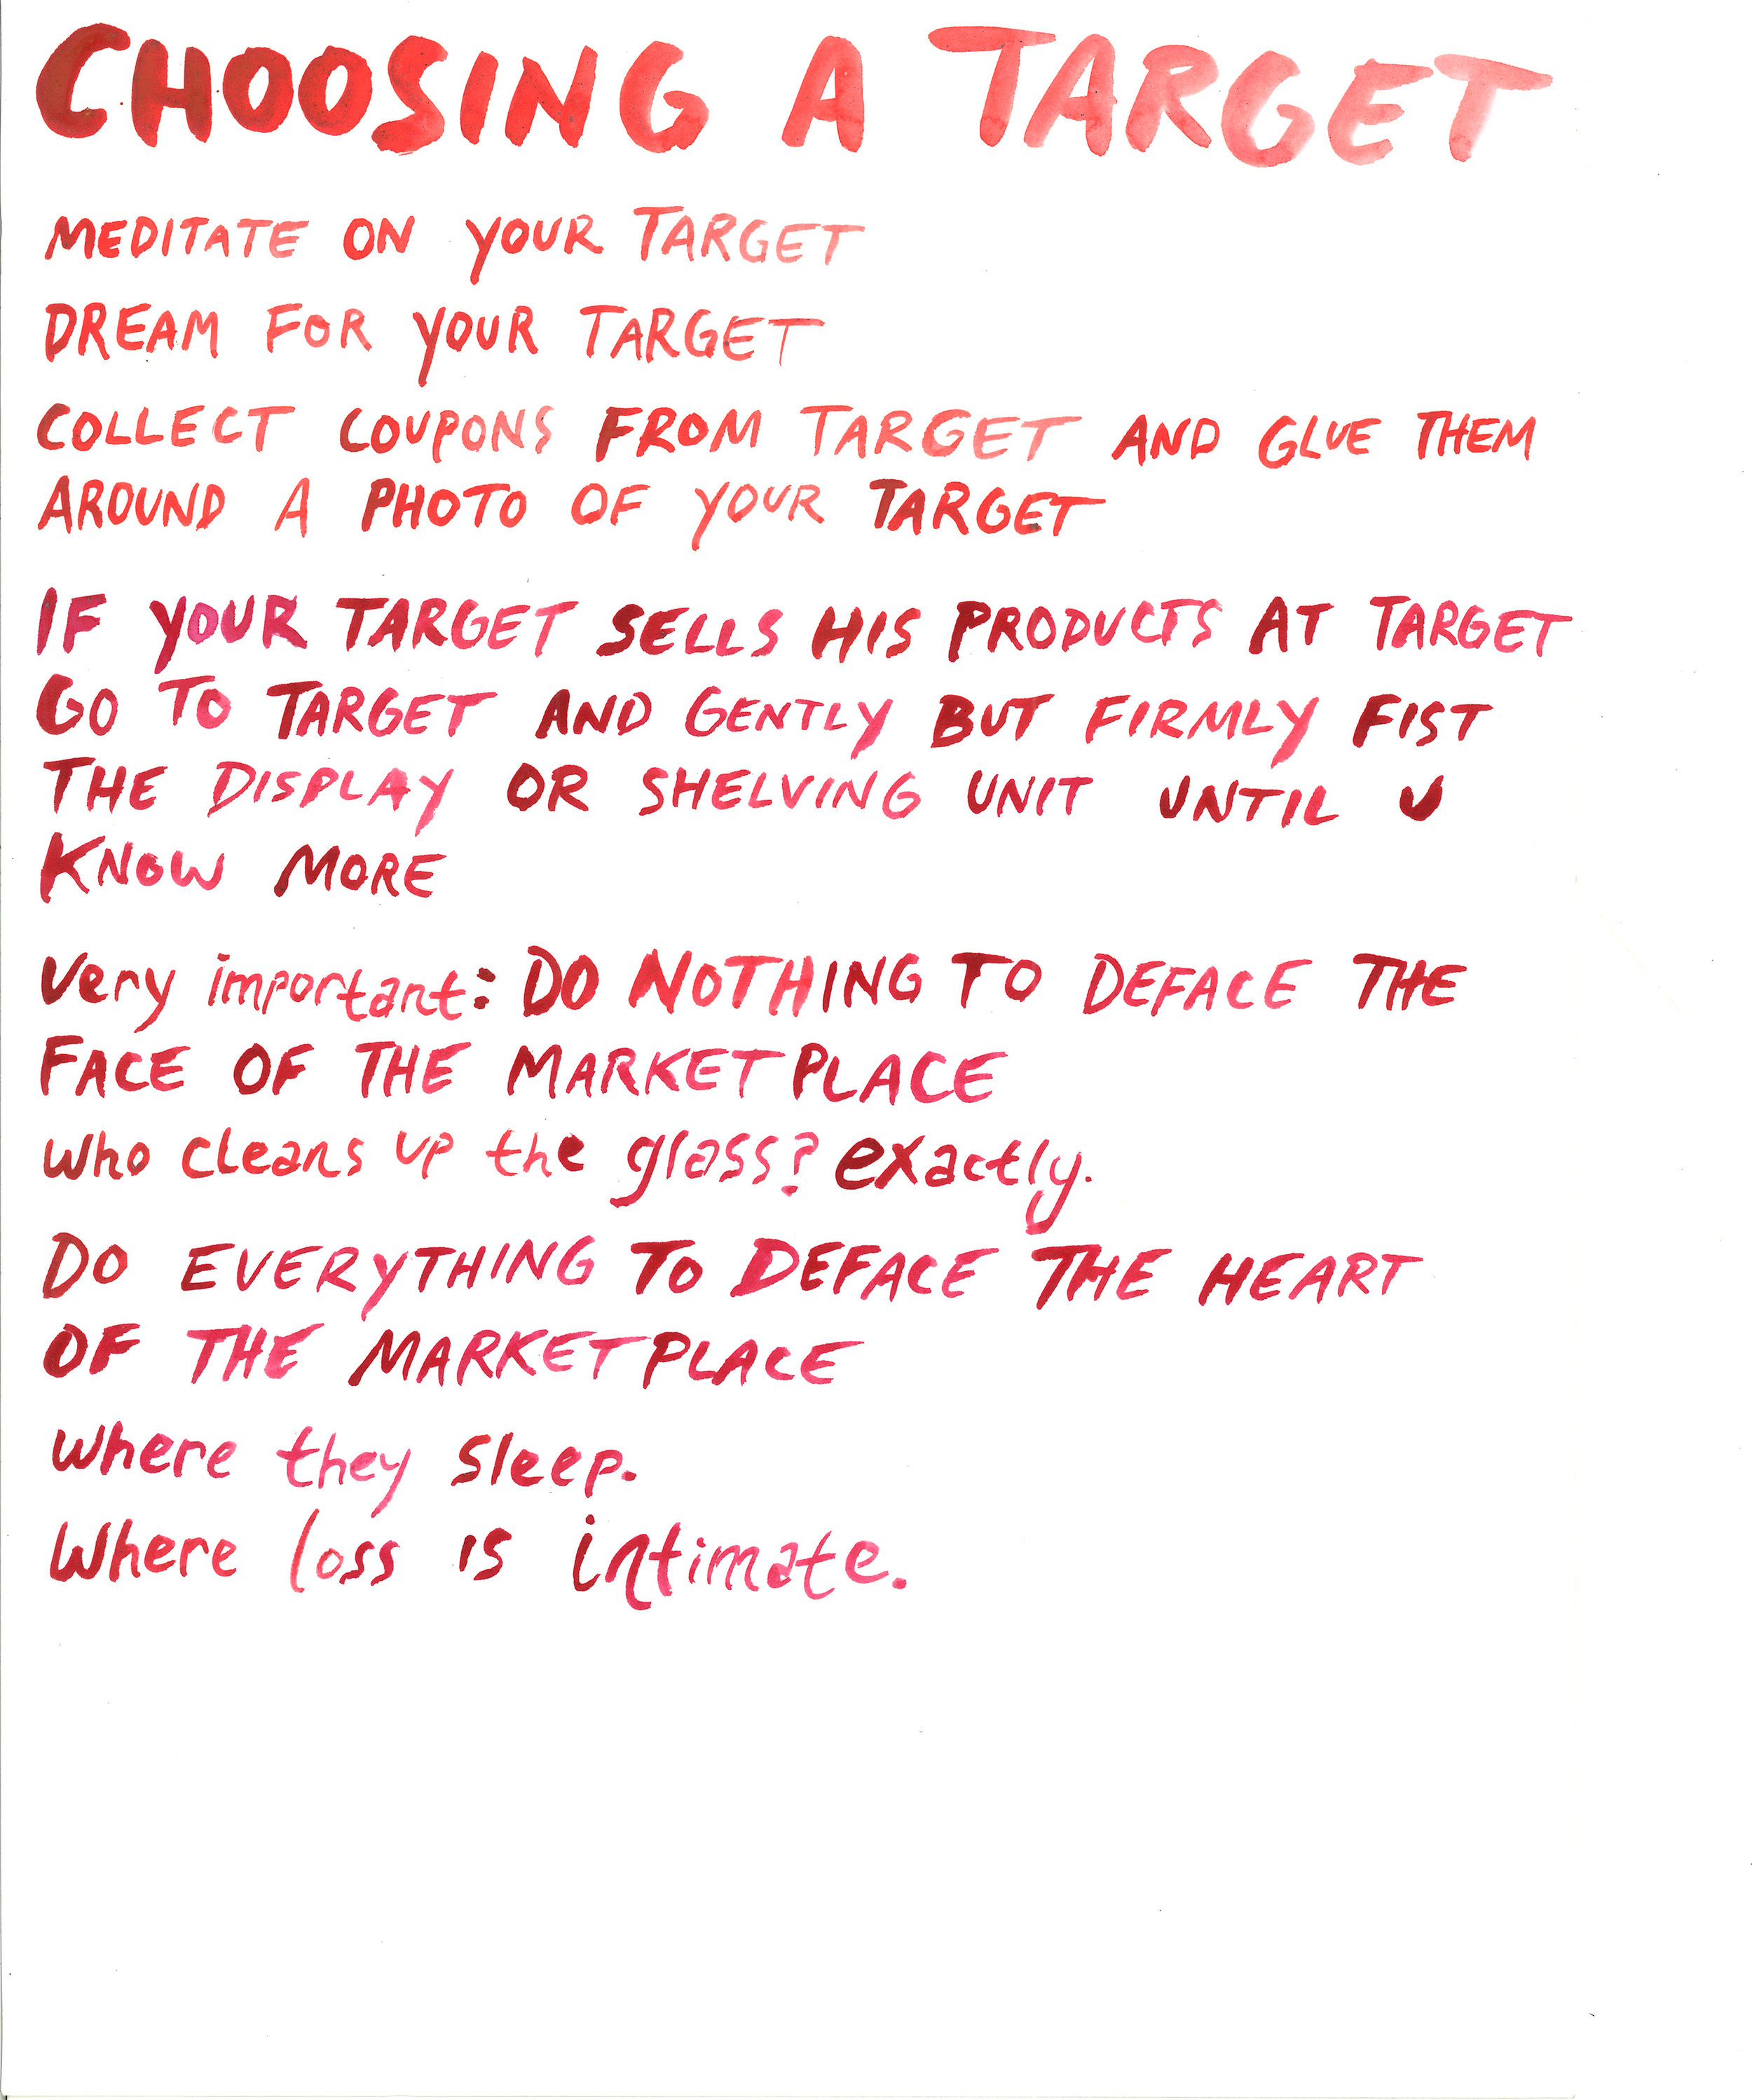 CHOOSING A TARGET
MEDITATE ON YOUR TARGET
DREAM FOR YOUR TARGET
COLLECT COUPONS FROM TARGET AND GLUE THEM
AROUND A PHOTO OF YOUR TARGET
IF YOUR TARGET SELLS HIS PRODUCTS AT TARGET
GO TO TARGET AND GENTLY BUT FIRMLY FIST
THE DISPLAY OR SHELVING UNIT UNTIL U
KNOW MORE
Very important: DO NOTHING TO DEFACE THE
FACE OF THE MARKETPLACE
who cleans up the glass? exactly.
DO EVERYTHING TO DEFACE THE HEART
OF THE MARKETPLACE
where they sleep.
Where loss is intimate.